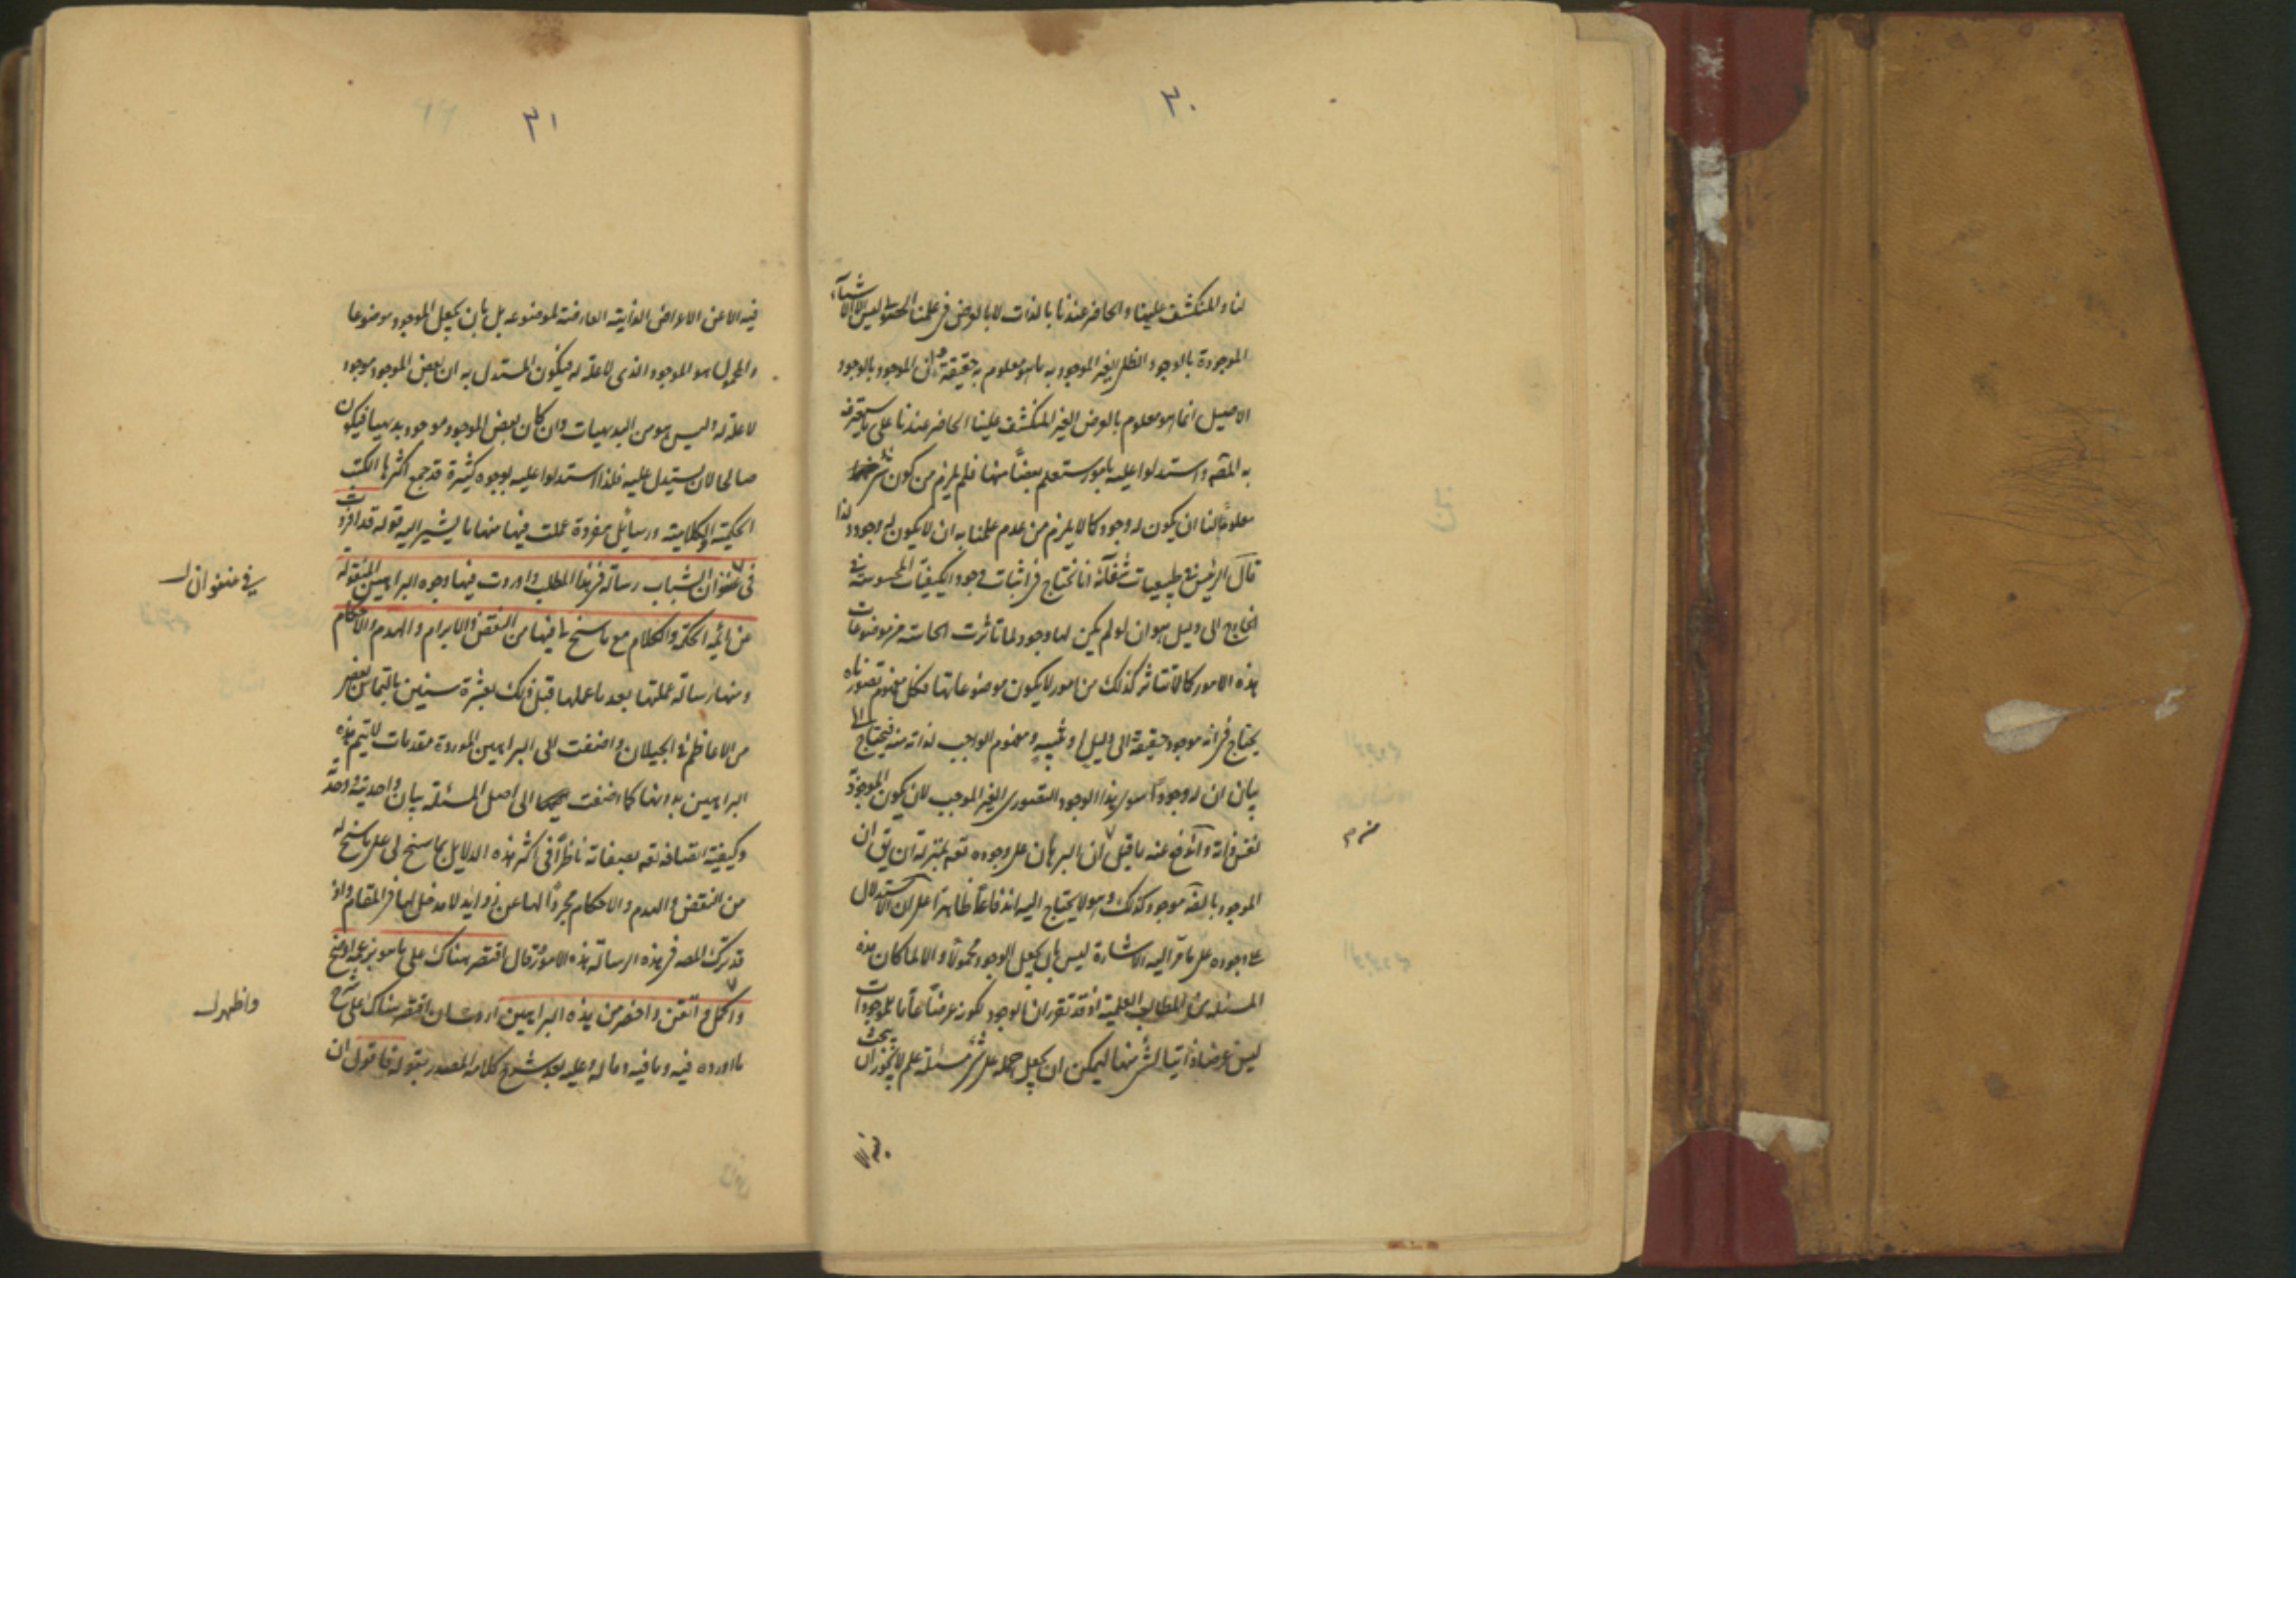 ٣٠
لنا والمنكشف علينا والحاضر عندنا بالذات لا بالعرض في علمنا الحصولي ليس الا الاشياء
الموجودة بالوجود الظلي الغير الموجود به ما هو معلوم به حقيقة وان الموجود بالوجود
الاصيل انما هو معلوم بالعرض الغير المنكشف علينا الحاضر عندنا على
به المصـ واستدلوا عليه بامور ستعلم بعضا منها فلم يلزم من كون شئ
معلوما لنا ان يكون له وجود كما لا يلزم من عدم علمنا به ان لا يكون له وجود ولذا
قال الرئيس في طبيعيات شفائه انا نحتاج في اثبات وجود الكيفيات المحسوسة في
الخارج الى دليل هو ان لو لم يكن لها وجود لما تاثرت الحاسة من موضوعات
هذه الامور كما لا تتاثر كذلك من امور لا يكون موضوعاتها فكل مفهوم تصورناه
يحتاج في انه موجود حقيقة الى دليل او تنبيه ومفهوم الواجب لذاته منه فيحتاج الى
بيان ان له وجودا سوى هذا الوجود التصوري الغير الموجب لان يكون الموجود
نفس ذاته واندفع عنه ما قيل ان البرهان على وجوده تعه بمنزلة ان يق ان
الموجود بالفعل موجود كذلك وهو لا يحتاج اليه اندفاعا ظاهرا على ان الاستدلال
على وجوده على ما مر اليه الاشارة ليس بان يجعل الوجود محمولا والا لما كان هذه
المسئلة من المطالب العلمية اذ قد تقرر ان الوجود لكونه عرضا عاما للموجودات
ليس عرضا ذاتيا لشئ منها ليمكن ان يجعل حمله على شئ مسئلة علم لا يجوز ان يبحث
منه م
فيه الا
٣١
فيه الا عن الاعراض الذاتية العارضة لموضوعه بل بان يجعل الموجود موضوعا
والمحمول هو الموجود الذي لا علة له فيكون المستدل به ان بعض الموجود موجود
لا علة له وليس هو من البديهيات وان كان بعض الموجود موجود بديهيا فيكون
صالحا لان يستدل عليه فلذا استدلوا عليه بوجوه كثيرة قد جمع اكثرها الكتب
الحكمية والكلامية ورسائل مفردة عملت فيها منها ما يشير اليه قوله قد افردت
في عنفوان الشباب رسالة في هذا المطلب واوردت فيها وجوه البراهين المنقولة
عن ائمة الحكمة والكلام مع ما سنح لي فيها من النقض والابرام والهدم والاحكام
ومنها رسالة عملتها بعد ما عملها قبل ذلك بعشرة سنين بالتماس بعض
من الاعاظم في الجيلان واضفت الى البراهين الموردة مقدمات لا يتم هذه
البراهين بدونها كما اضفت الى اصل المسئلة بيان واحديته ووحدته
وكيفية اتصافه تعه بصفاته ناظرا في اكثر هذه الدلايل بما سنح لي على ما سنح له
من النقض والهدم والاحكام مجردا لها عن زوايد لا مدخل لها في المقام واذ
قد ترك المصـ في هذه الرسالة هذه الامور قال اقتصر هناك على ما هو بزعمه اوضح
واكمل واتقن واخصر من هذه البراهين اردت ان اقتصر هناك على شرح
ما اورده فيه وما فيه وما له وعليه بعد شرح كلامه المصدر بقوله فاقول ان
في عنفوان
واظهر